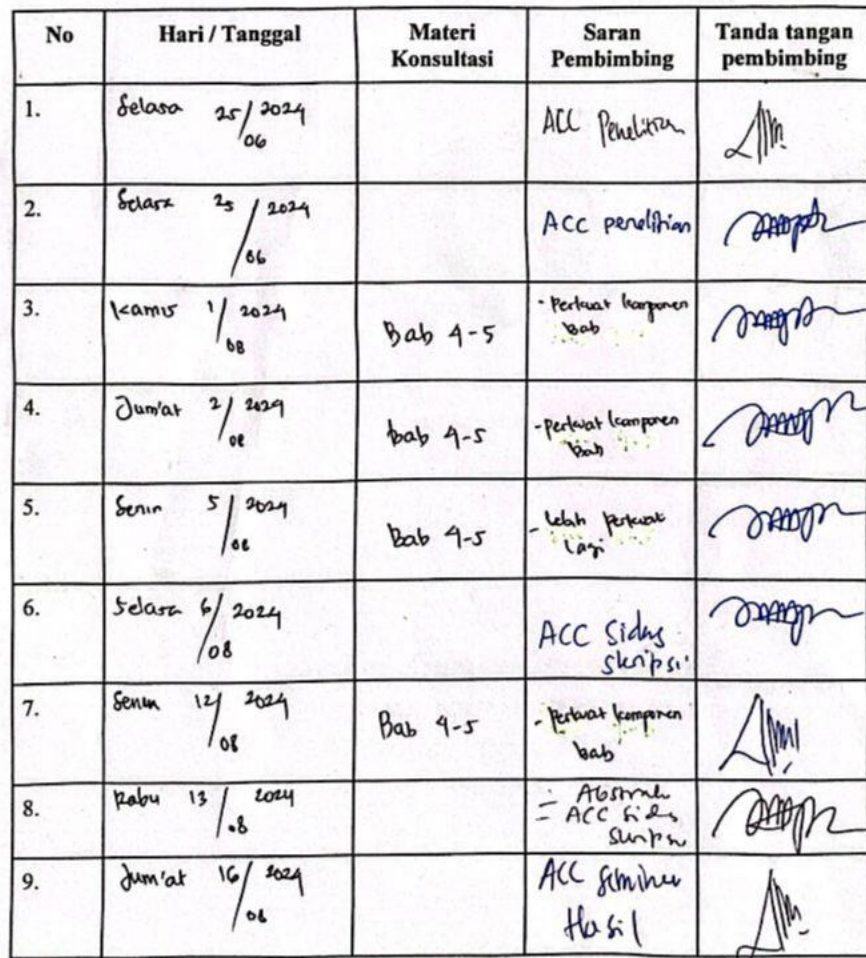 No Hari / Tanggal Materi Konsultasi Saran Pembimbing Tanda tangan pembimbing
1. Selasa 25/06 2024 ACC Penelitian
2. Selasa 25/06 2024 ACC penelitian
3. Kamis 1/08 2024 Bab 4-5 - Perkuat komponen Bab
4. Jum'at 2/08 2024 bab 4-5 - perkuat komponen Bab
5. Senin 5/08 2024 Bab 4-5 - lebih perkuat lagi
6. Selasa 6/08 2024 ACC Sidang skripsi
7. Senin 12/08 2024 Bab 4-5 - Perkuat komponen bab
8. Rabu 13/08 2024 - Abstrak - ACC sidang skripsi
9. Jum'at 16/08 2024 ACC seminar Hasil